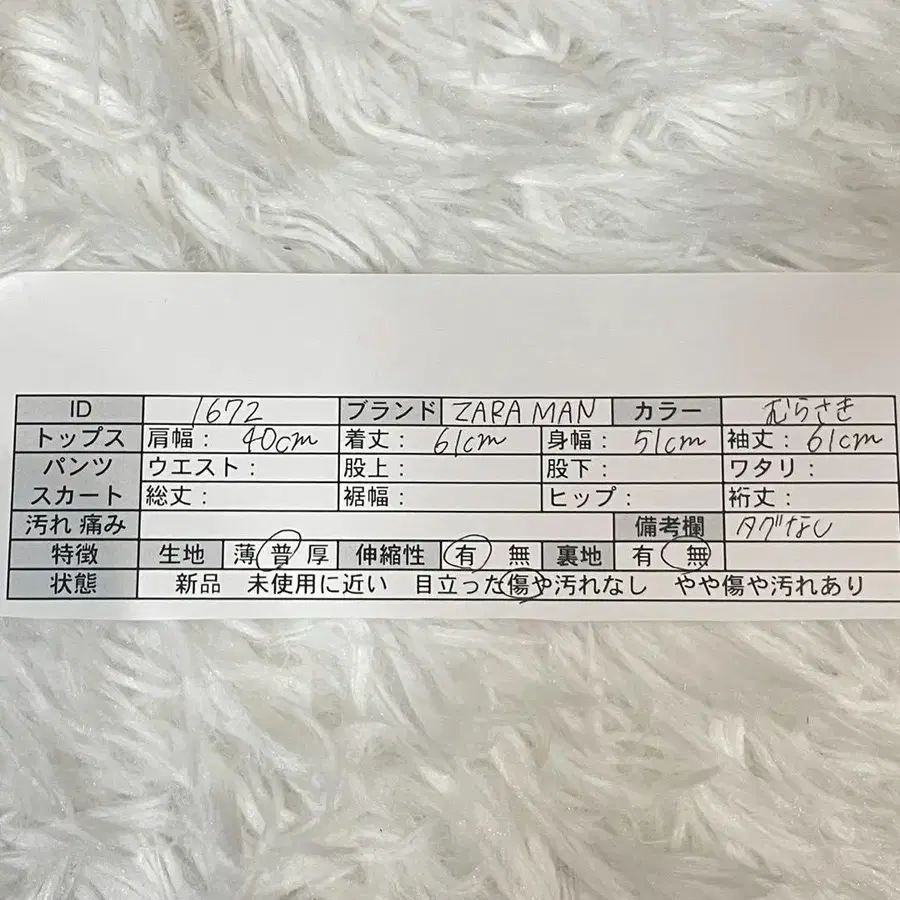 ID 1672 ブランド ZARA MAN カラー むらさき
トップス 肩幅： 40cm 着丈： 61cm 身幅： 51cm 袖丈： 61cm
パンツ ウエスト： 股上： 股下： ワタリ：
スカート 総丈： 裾幅： ヒップ： 裄丈：
汚れ 痛み 備考欄 タグなし
特徴 生地 薄 普 厚 伸縮性 有 無 裏地 有 無
状態 新品 未使用に近い 目立った傷や汚れなし やや傷や汚れあり